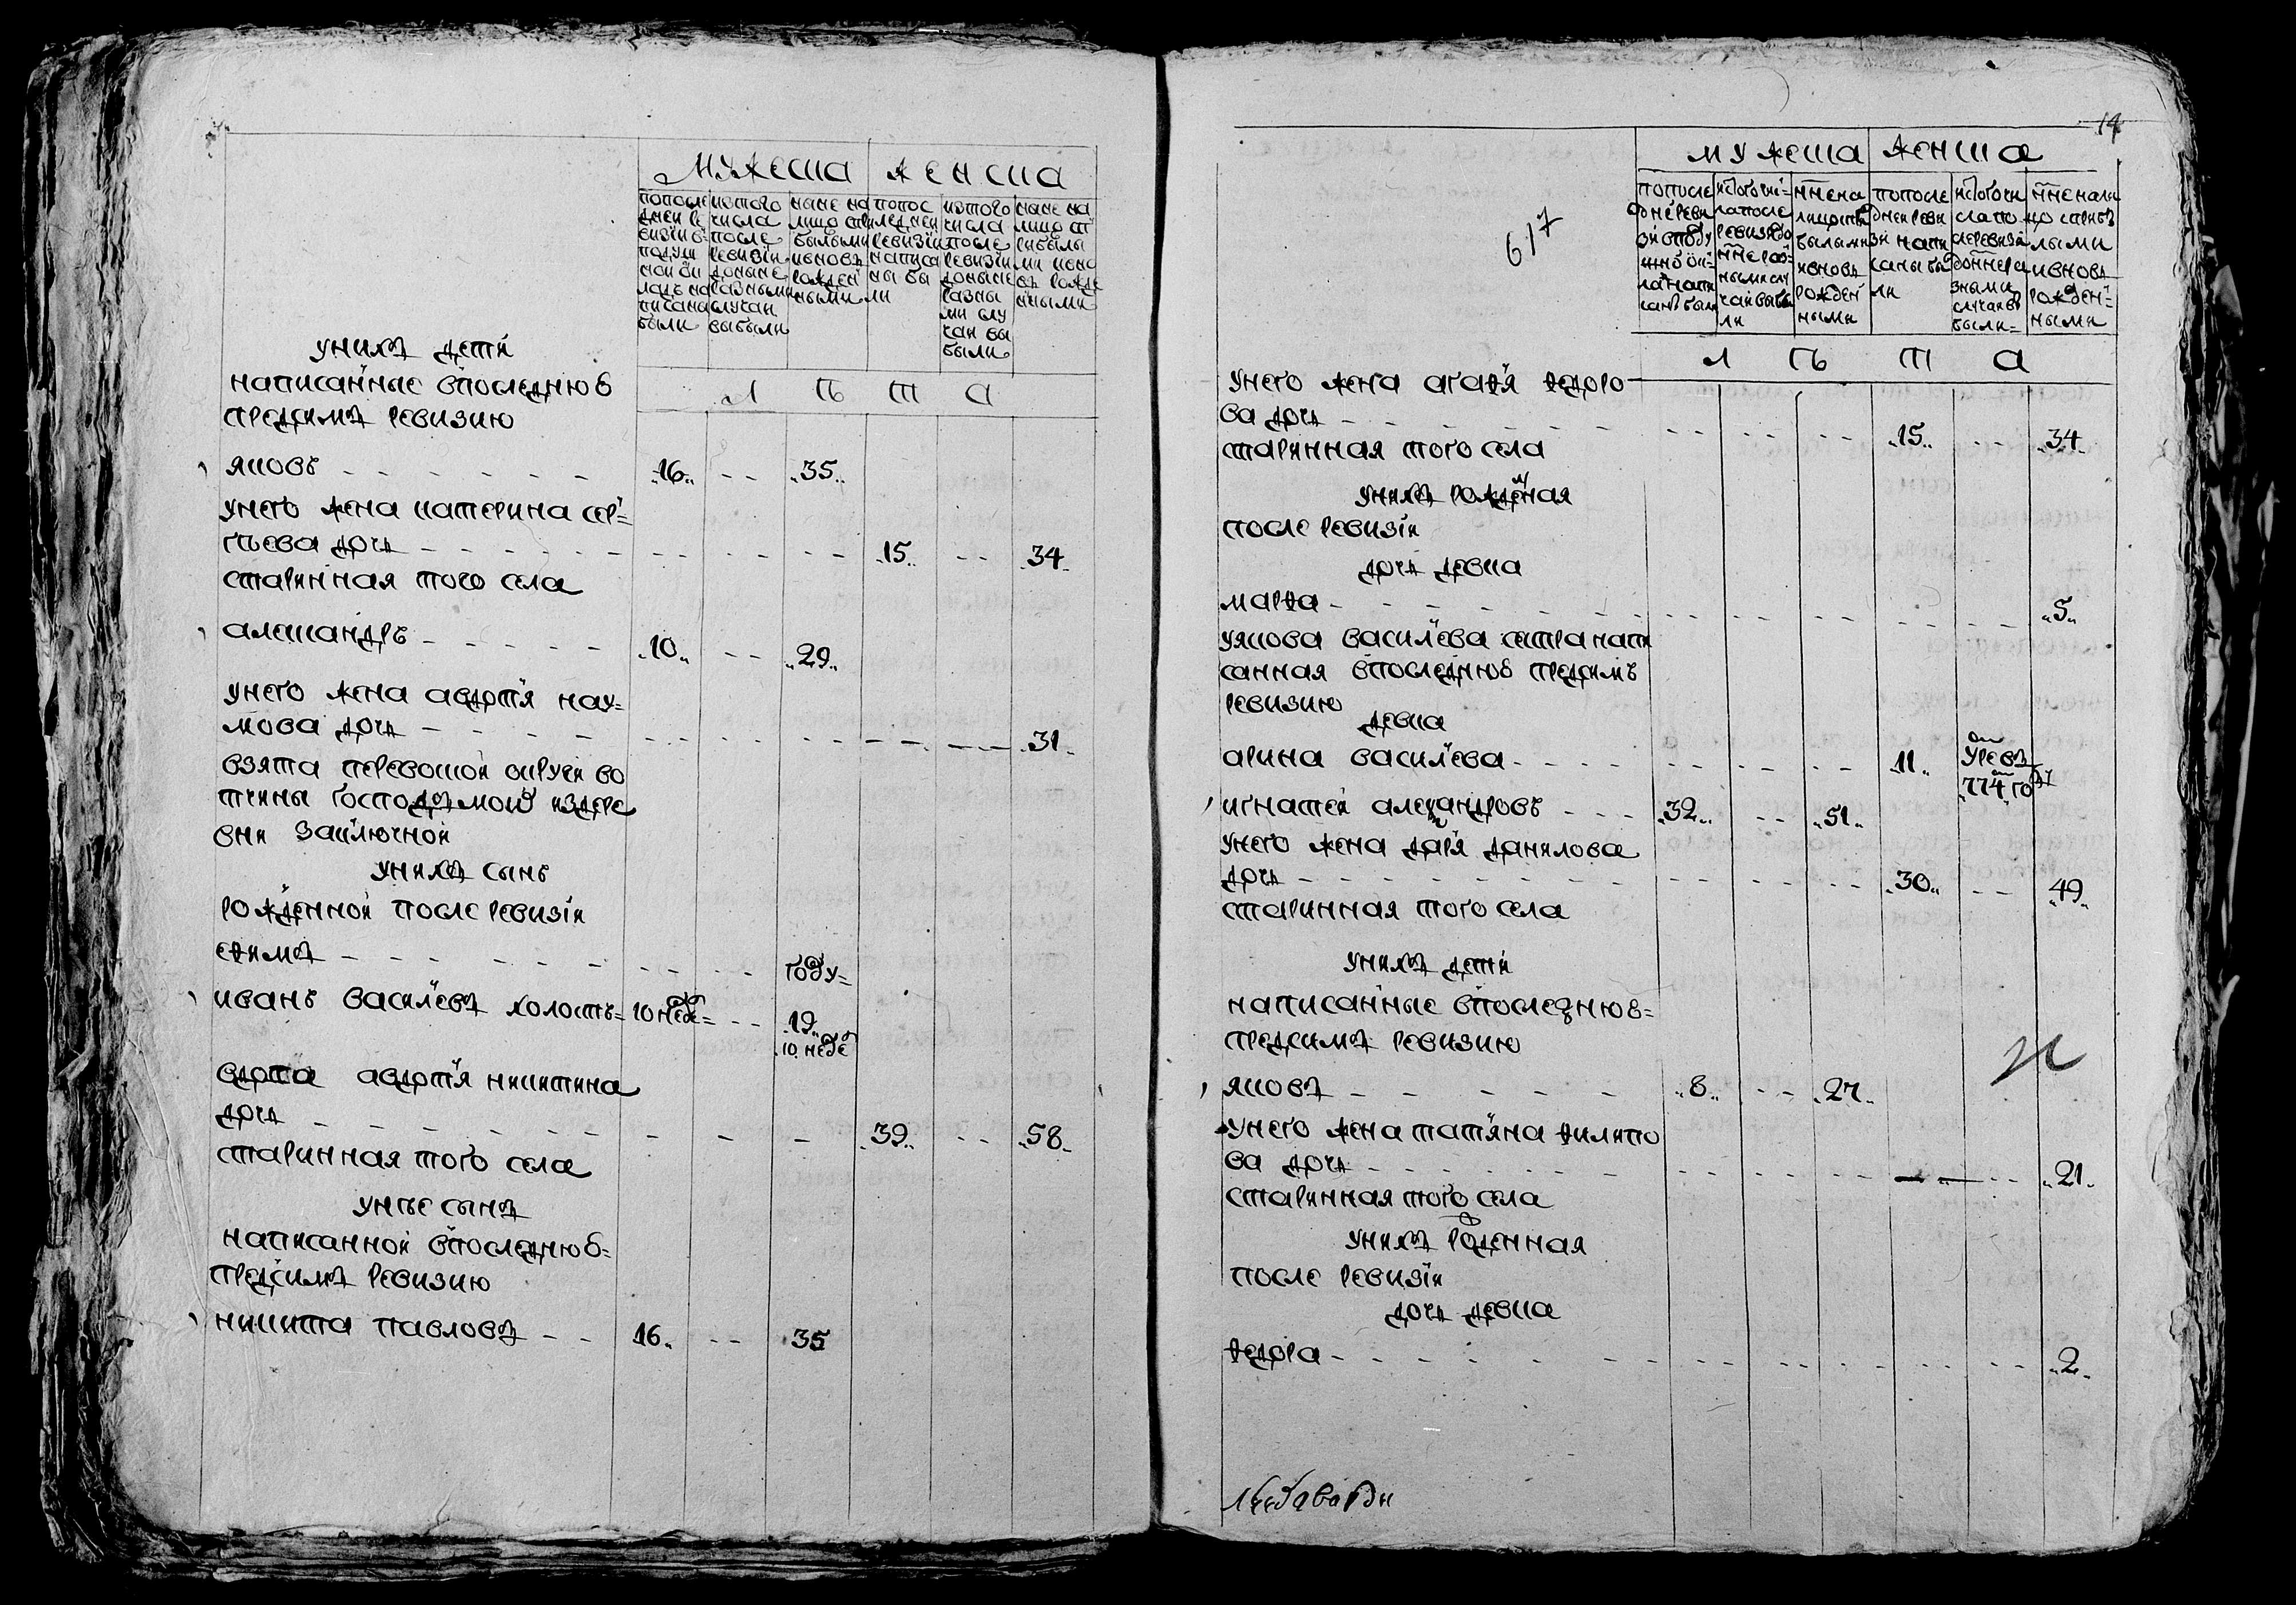 мужеска женска
попосле
дней ре
визии в
подуш
ной ок
ладъ на
писаны
были
изтого
числа
после
ревизіи
доныне
разными
случаи
выбыли
ныне на
лицо спри
былыми
ивновъ
рожден
ными
попос
ледней
ревизіи
написа
ны бы
ли
изтого
числа
после
ревизіи
доныне
разны
ми слу
чаи вы
были
ныне на
лицо сп
рибылы
ми ивно
въ рожде
нными
л ѣ т а
униxъ дети
написанные впоследнюю
предсимъ ревизию
яковъ - - - - - - „16„ - - „35„
унего жена катерина сер=
гѣева дочь - - - - - - - - „15„ - - „34„
старинная того села
александръ - - - - - „10„ - - „29„
унего жена авдотя нау=
мова дочь - - - - - - - - - - - „31„
взята перевоской округи во
тчины господъ моихъ издере
вни заключной
унихъ сынъ
рожденной после ревизіи
ефимъ - - - - - - - - - году=
иванъ василевъ холостъ= 10 неде= - - „19„
10 неде
вдова авдотя никитина
дочь - - - - - - - - - „39„ - - „58„
старинная того села
унѣе сынъ
написанной впоследнюю=
предсимъ ревизию
никита павловъ - - „16„ - - „35
14
617
мужеска женска
попосле
дне реви
зй вподу
шно ок=
ладъ напи
саны были
истого чи=
ла после
ревизй до
нне раз=
ными слу
чаи выбы
ли
нне на
лицо при
былыми
ивновъ
рожден
ными
попосле
дней реви
зй напи
саны бы
ли
истого чи
сла по
сле ревизи
до нне ра
зными
случаи вы
были=
нне нали
цо сприбы
лыми
ивновъ
рожден=
ными
л ѣ т а
унего жена агафя федоро
ва дочь - - - - - - - - - „15„ - - „34„
старинная того села
унихъ рожденая
после ревизіи
дочь девка
марфа - - - - - - - - - - - - „5„
уякова василева сестра напи
санная впоследнюю предсимъ
ревизию
девка
арина василева - - - - - - - „11„
774 го
игнатей александровъ - - - „32„ - - „51„
унего жена даря данилова
дочь - - - - - - - - - - „30„ - - „49„
старинная того села
унихъ дети
написанные впоследнюю=
предсимъ ревизию
яковъ - - - - - „8„ - - „27„
унего жена татяна филипо
ва дочь - - - - - - - - - - - „21„
старинная того села
унихъ роденная
после ревизіи
дочь девка
федора - - - - - - - - - - - - „2„